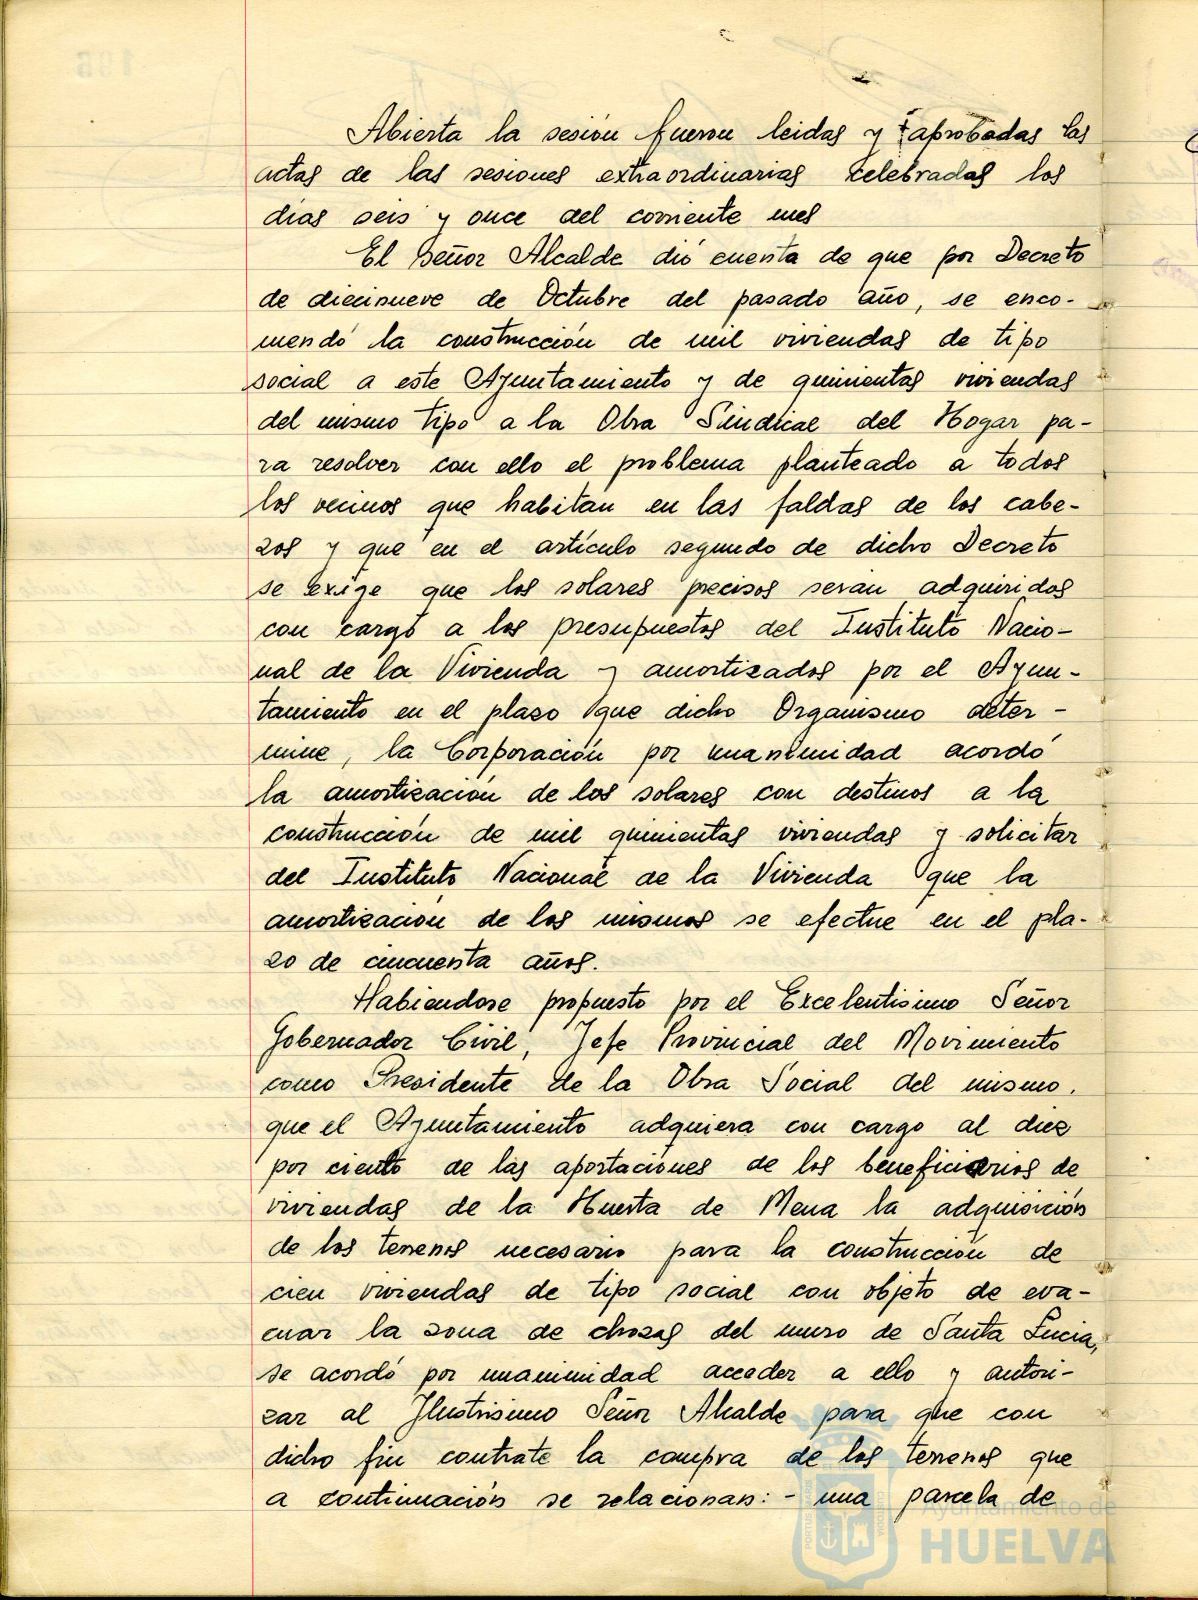 Abierta la sesión fueron leidas y aprobadas las
actas de las sesiones extraordinarias celebradas los
días seis y once del corriente mes
El Señor Alcalde dió cuenta de que por Decreto
de diecinueve de Octubre del pasado año, se enco-
mendó la construcción de mil viviendas de tipo
social a este Ayuntamiento y de quinientas viviendas
del mismo tipo a la Obra Sindical del Hogar pa-
ra resolver con ello el problema planteado a todos
los vecinos que habitan en las faldas de los cabe-
zos y que en el artículo segundo de dicho Decreto
se exige que los solares precisos serán adquiridos
con cargo a los presupuestos del Instituto Nacio-
nal de la Vivienda y amortizados por el Ayun-
tamiento en el plazo que dicho Organismo deter-
mine, la Corporación por unanimidad acordó
la amortización de los solares con destinos a la
construcción de mil quinientas viviendas y solicitar
del Instituto Nacional de la Vivienda que la
amortización de los mismos se efectue en el pla-
zo de cincuenta años.
Habiendose propuesto por el Excelentisimo Señor
Gobernador Civil, Jefe Provincial del Movimiento
como Presidente de la Obra Social del mismo,
que el Ayuntamiento adquiera con cargo al diez
por ciento de las aportaciones de los beneficiarios de
viviendas de la Huerta de Mena la adquisición
de los terrenos necesario para la construcción de
cien viviendas de tipo social con objeto de eva-
cuar la zona de chozas del muro de Santa Lucia,
se acordó por unanimidad acceder a ello y autori-
zar al Ilustrisimo Señor Alcalde para que con
dicho fin contrate la compra de los terrenos que
a continuación se relacionan:- una parcela de
Ayuntamiento de
HUELVA